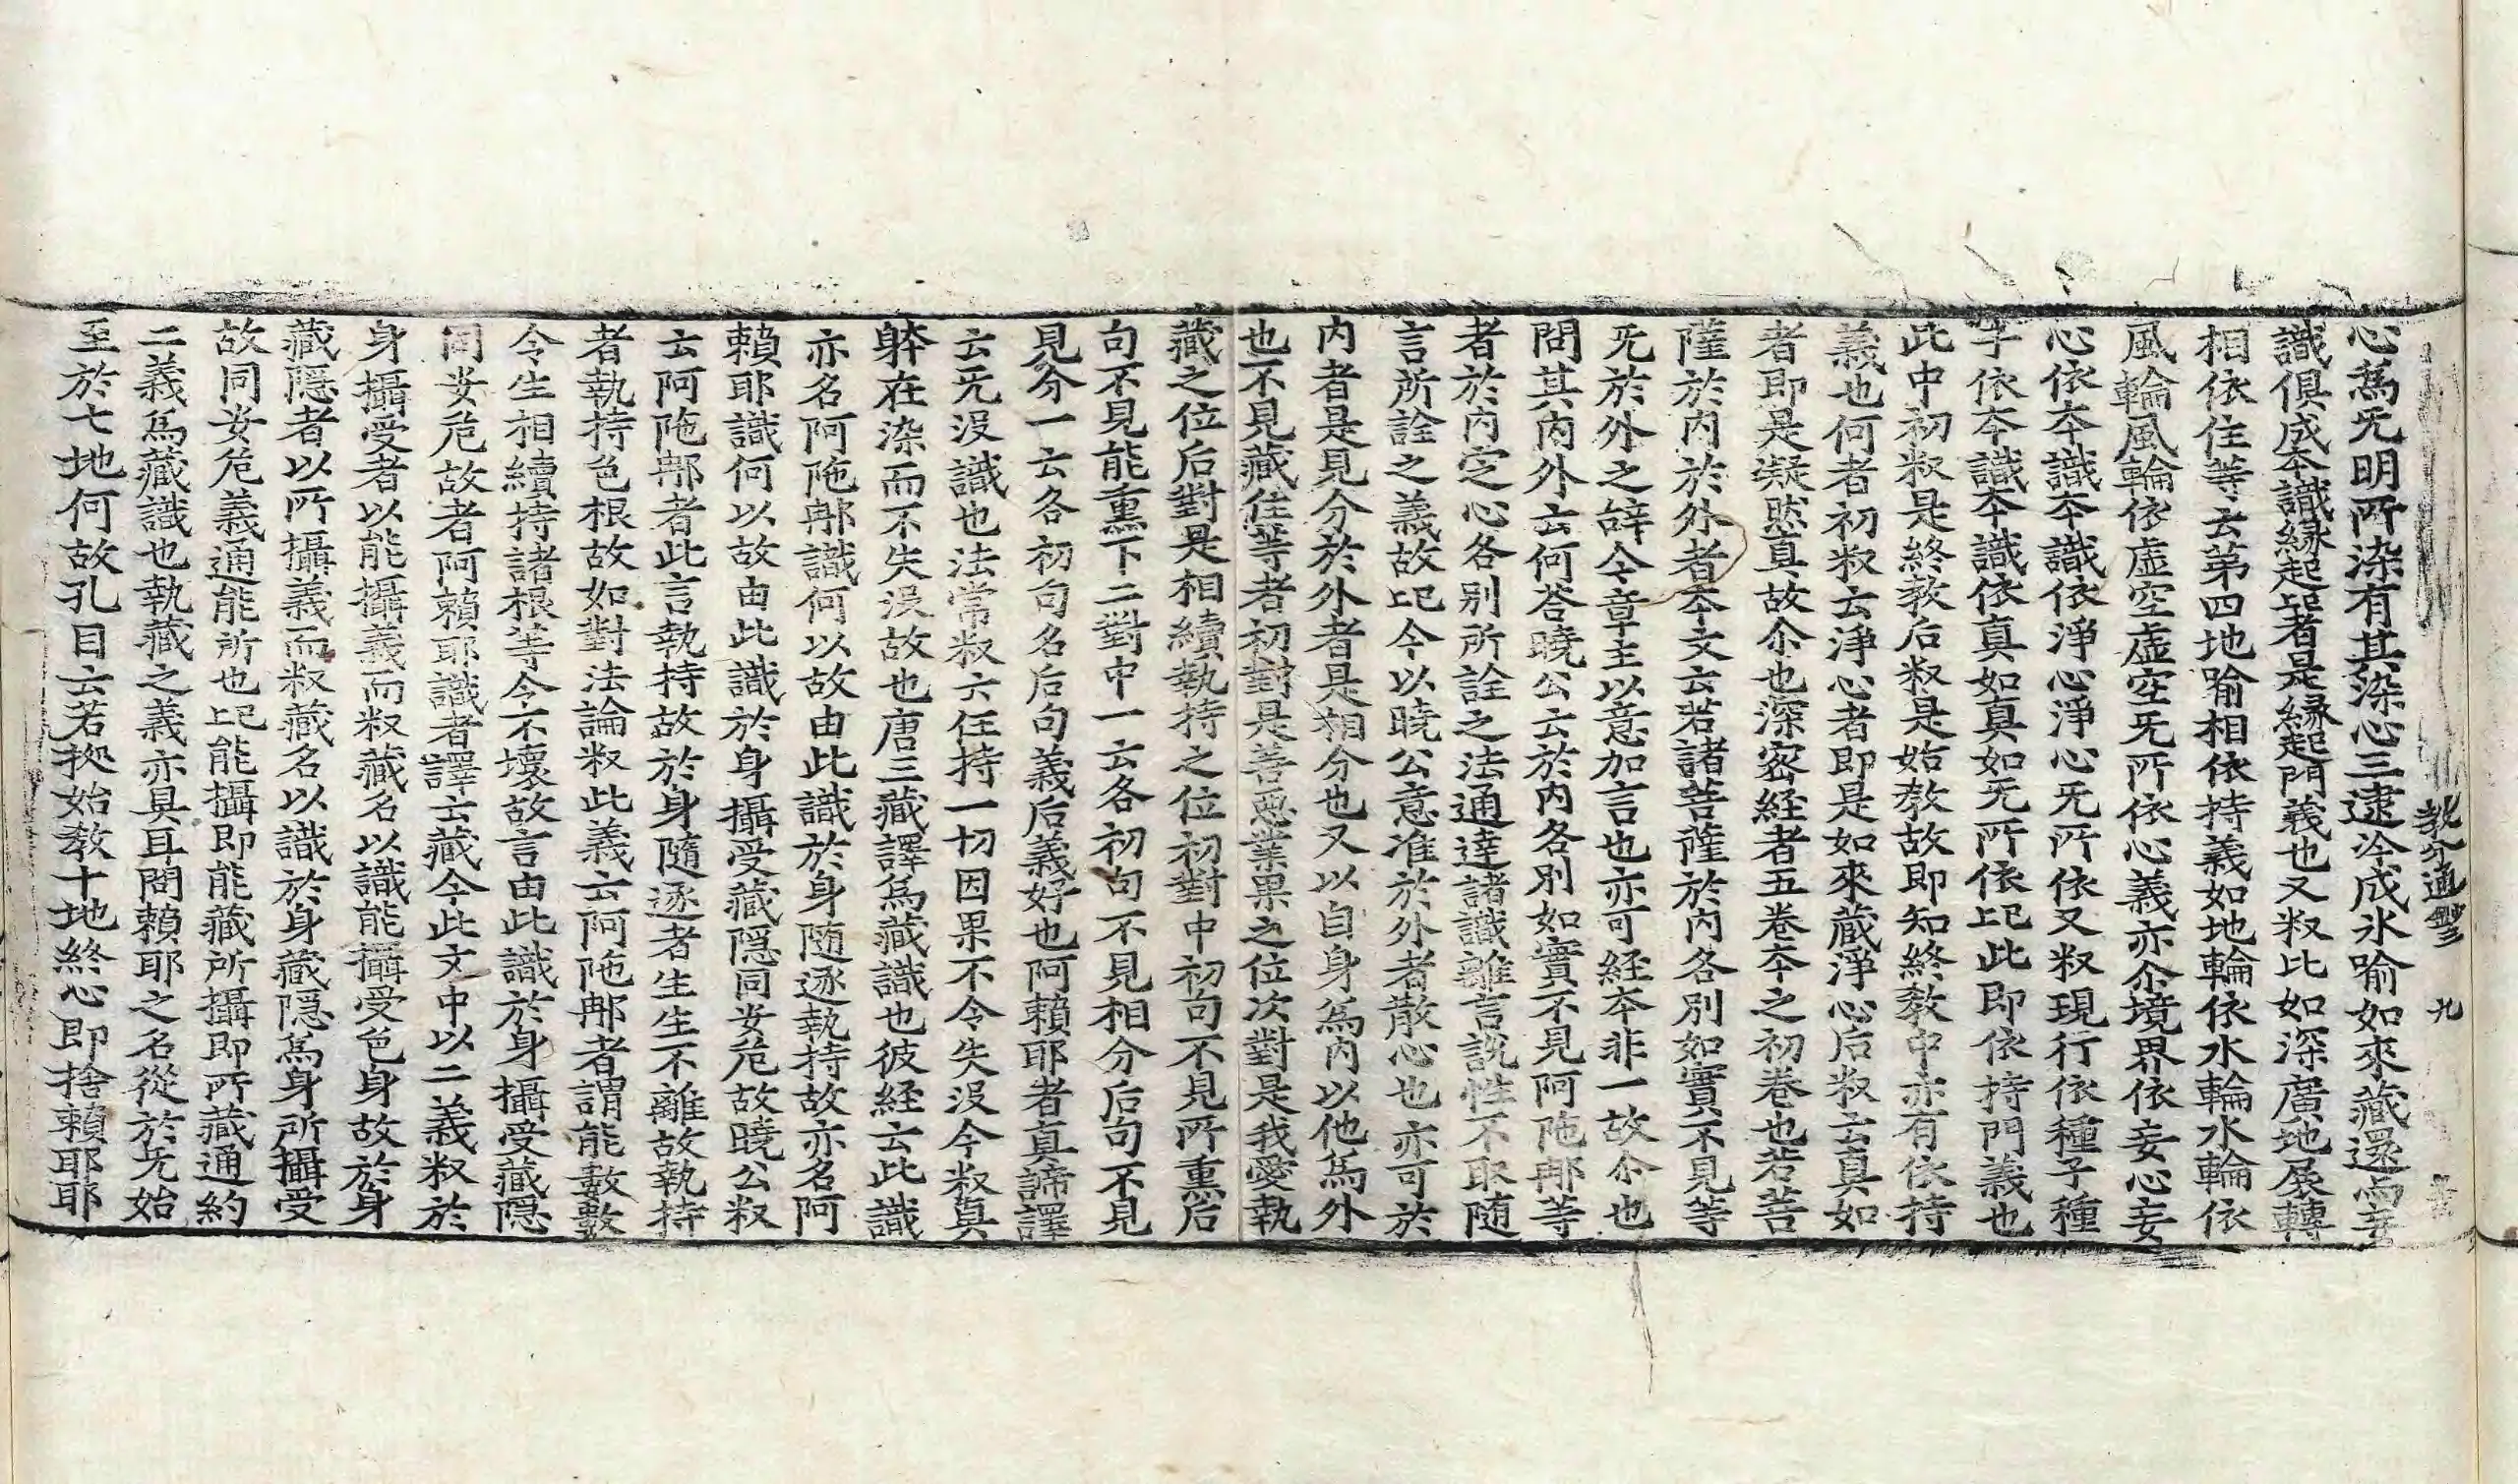 教分通鈔三　九
心爲无明所染有其染心三逮冷成氷喻如來藏還而妄
識俱成夲識縁起者是縁起門義也又釈比如深廣地展轉
相依住等云第四地喻相依持義如地輪依水輪水輪依
風輪風輪依虛空虛空旡所依心義亦尒境界依妄心妄
心依夲識夲識依淨心淨心旡所依又釈現行依種子種
子依夲識夲識依真如真如旡所依已此即依持門義也
此中初釈是終敎后釈是始敎故即知終敎中亦有依持
義也何者初釈云淨心者即是如來藏淨心后釈云真如
者即是凝㷔真故尒也深密経者五巻夲之初巻也若菩
薩於内於外者夲文云若諸菩薩於内各別如實不見等
旡於外之辝今章主以意加言也亦可経夲非一故尒也
問其内外云何荅曉公云於内各別如實不見阿陁𨚗等
者於内定心各別所詮之法通達諸識離言說性不取隨
言所詮之義故已今以曉公意准於外者散心也亦可於
内者是見分於外者是相分也又以自身爲内以他爲外
也不見藏住等者初對是善惡業果之位次對是我愛執
藏之位后對是相續執持之位初對中初句不見所熏后
句不見能熏下二對中一云各初句不見相分后句不見
見分一云各初句名后句義后義好也阿賴耶者真諦譯
云旡没識也法常釈云任持一切因果不令失没今釈真
躰在染而不失没故也唐三藏譯爲藏識也彼経云此識
亦名阿陁𨚗識何以故由此識於身隨逐執持故亦名阿
賴耶識何以故由此識於身攝受藏隱同安危故曉公釈
云阿陁𨚗者此言執持故於身隨逐者生生不離故執持
者執持色根故如對法論釈此義云阿陁𨚗者謂能數數
令生相續持諸根等令不壞故言由此識於身攝受藏隱
同安危故者阿賴耶識者譯云藏今此文中以二義釈於
身攝受者以能攝義而釈藏名以識能攝受色身故於身
藏隱者以所攝義而釈藏名以識於身藏隱爲身所攝受
故同安危義通能所也已能攝即能藏所攝即所藏通約
二義爲藏識也執藏之義亦具耳問賴耶之名從於旡始
至於七地何故孔目云若㨿始敎十地終心即捨賴耶耶